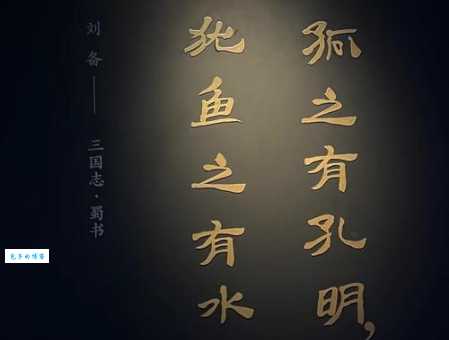 孤之有孔明，
犹鱼之有水
刘备——
三国志·蜀书